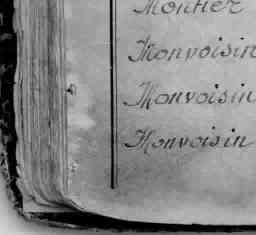 Montier
Monvoisin
Monvoisin
Monvoisin